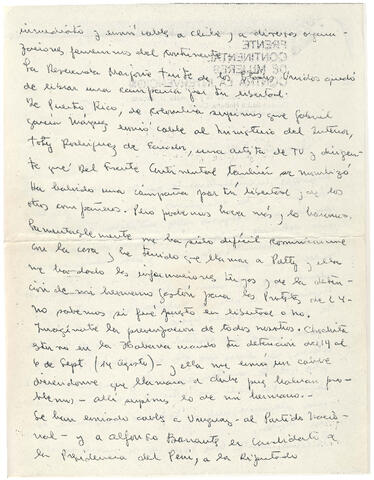 inmediato y envié cables a Chile y a diversas organi-
zaciones femeninas del continente.
FRENTE
CONTINENTAL
DE MUJERES
La Reverenda Marjorie Tuite de los Estados Unidos quedó
de librar una campaña por tu libertad.
De Puerto Rico, de Colombia supimos que Gabriel
García Márquez envió cable al Ministerio del Interior,
Toty Rodríguez de Ecuador, una artista de TV y dirigen-
te que del Frente Continental también se movilizó
Ha habido una campaña por tu libertad y de los
otros compañeros. Pero podemos hacer más y lo haremos.
Lamentablemente me ha sido difícil comunicarme
con la casa y he tenido que llamar a Patty y ella
me ha dado las informaciones tuyas y de la deten-
ción de mi hermano Gastón para las Protestas del 4-
no sabemos si fué puesto en libertad o no.
Imagínate la preocupación de todos nosotros.
estuvo en la Habana cuando tu detención del 14 al
6 de Sept (14 agosto) - y ella me envía un cable
diciéndome que llamara a Chile pués habían pro-
blemas - allí supimos lo de mi hermano.-
Se han enviado cables a Uruguay - al Partido Nacio-
nal - y a Alfonso Barrantes ex Candidato a
la Presidencia del Perú, a la Diputada